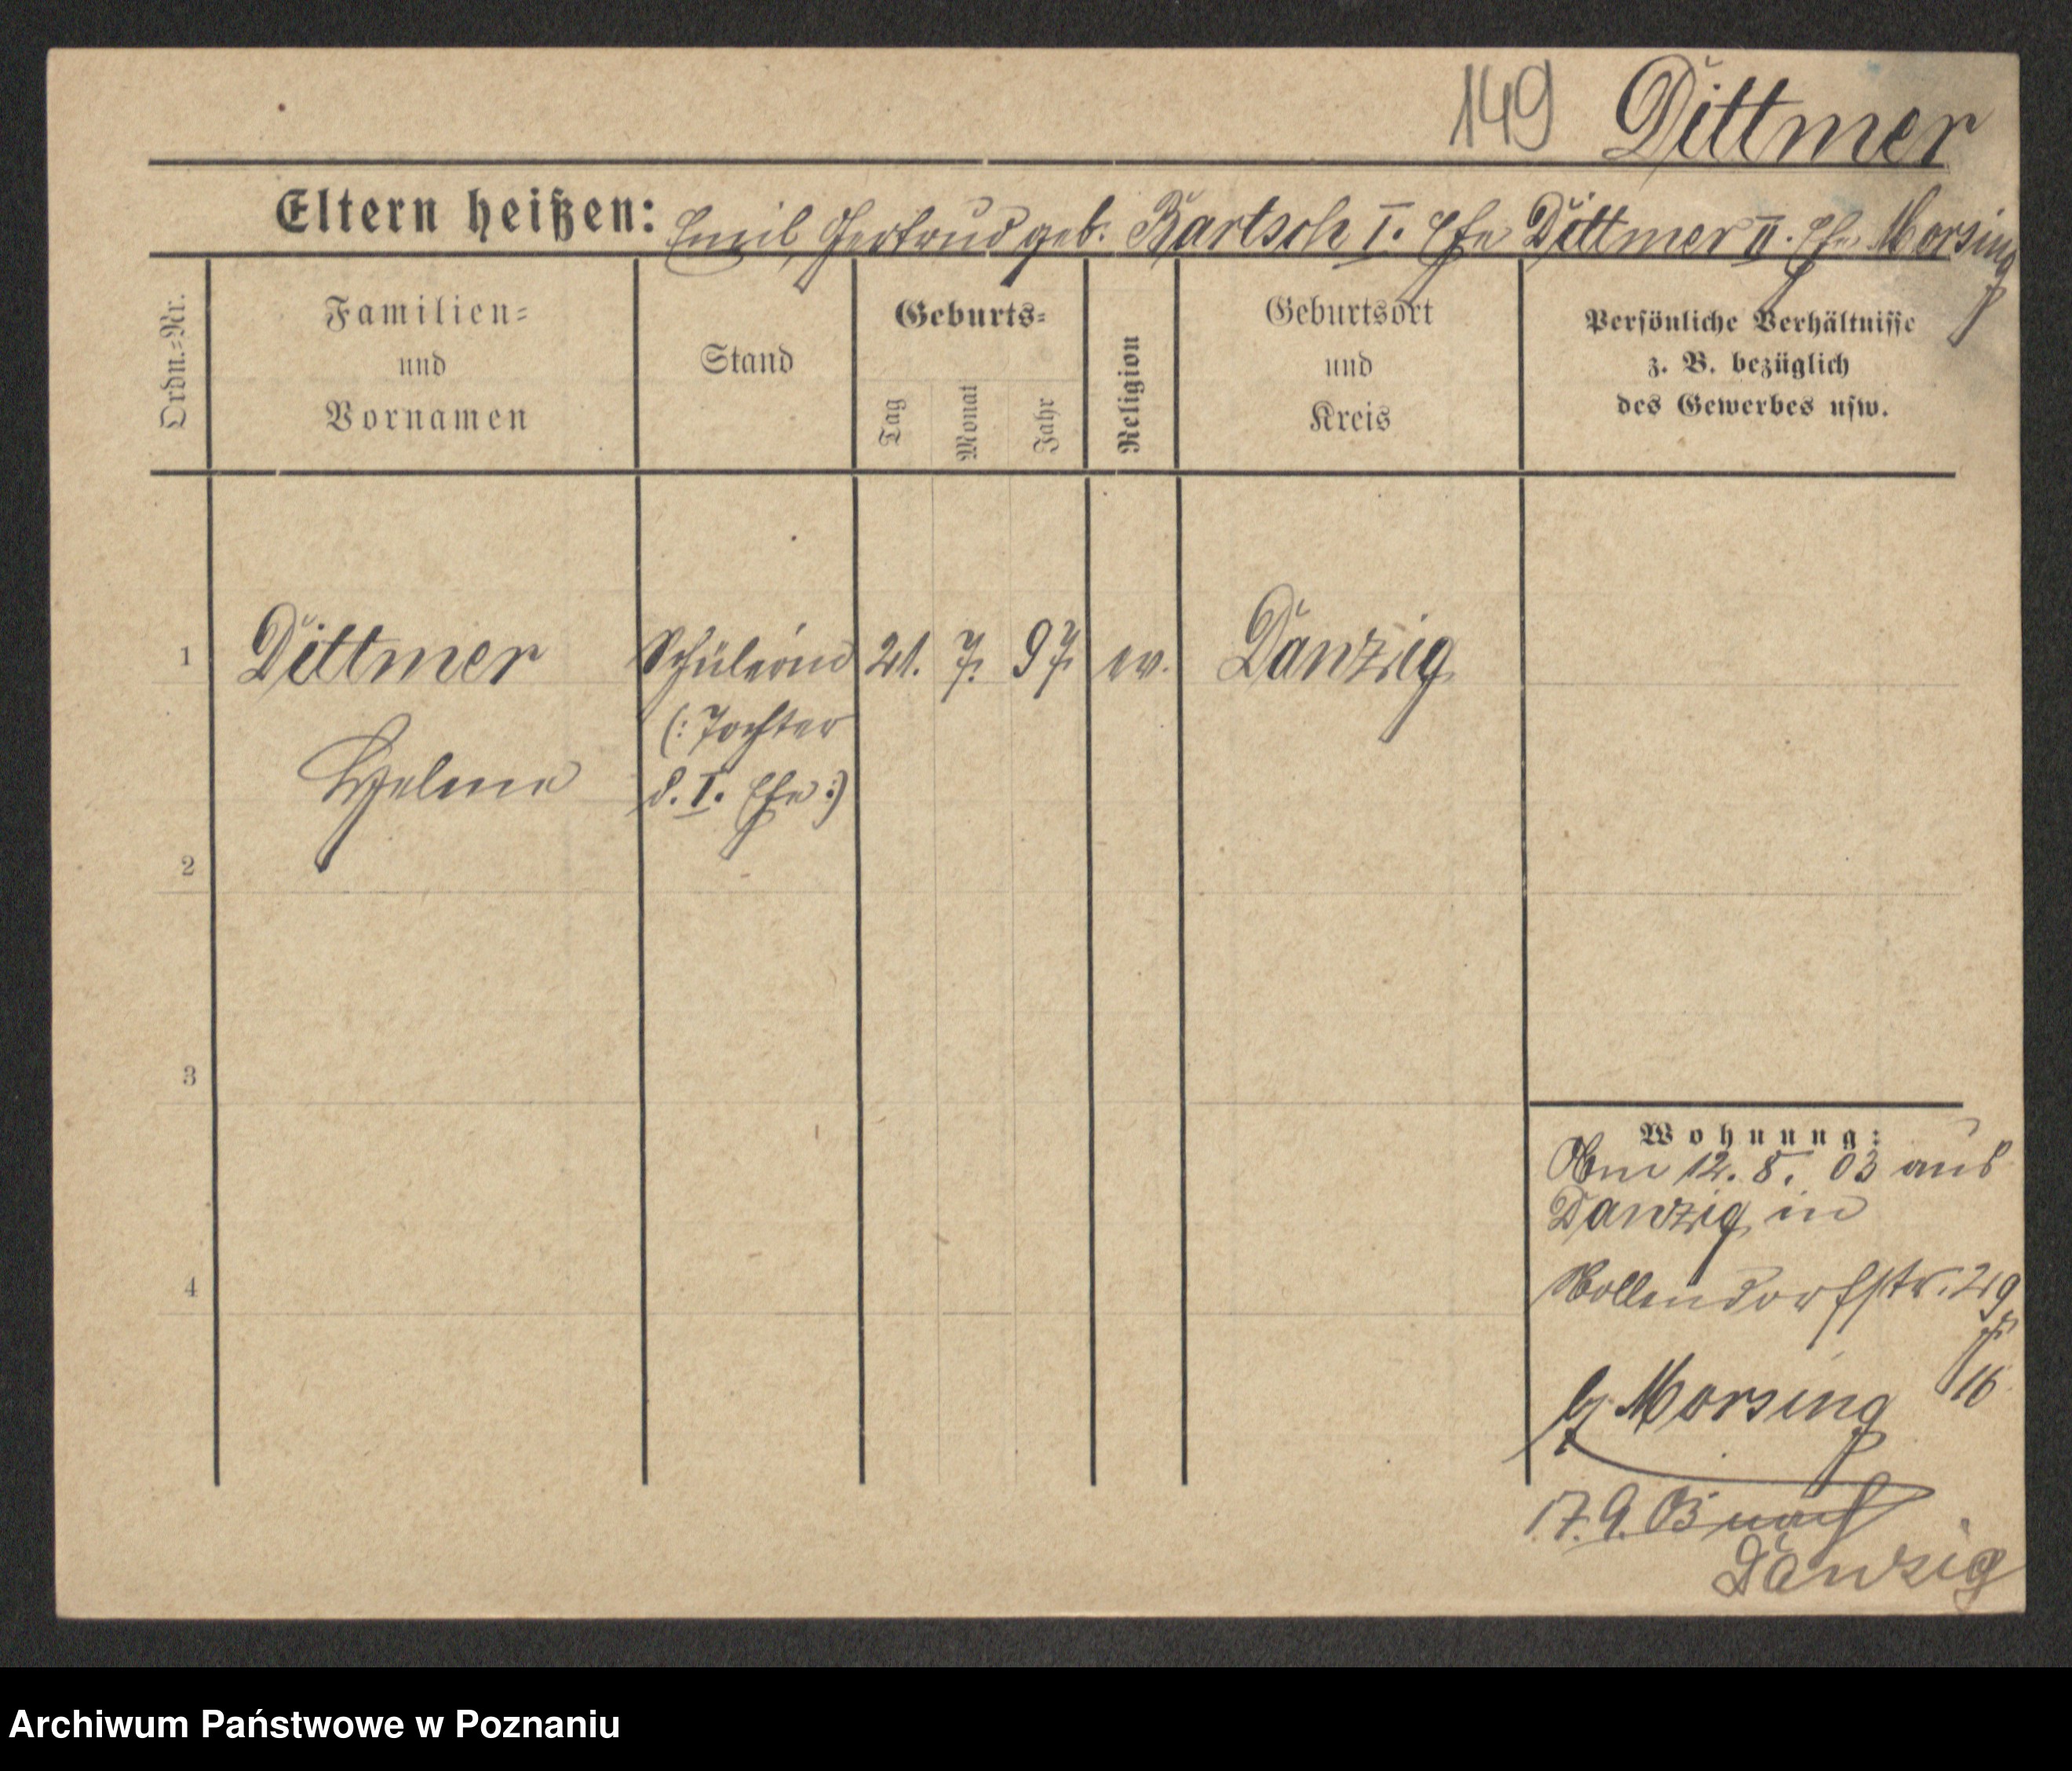 149 Dittmer
Eltern heißen: Emil, Gertrud geb. Bartsch I. Ehe Dittmer II. Ehe Morsing
Ordn.=Nr.
Familien=
und
Vornamen
Stand
Geburts=
Tag
Monat
Jahr
Religion
Geburtsort
und
Kreis
Persönliche Verhältnisse
z. B. bezüglich
des Gewerbes usw.
1 Dittmer Schülerin 21. 7. 97. ev. Danzig
(: Tochter
d. I. Ehe :)
2
3
4
Wohnung:
Am 12. 8. 03 aus
Danzig in
Hollendorfstr. 29
b/ Morsing
17. 9. 03 nach
Danzig
Archiwum Państwowe w Poznaniu